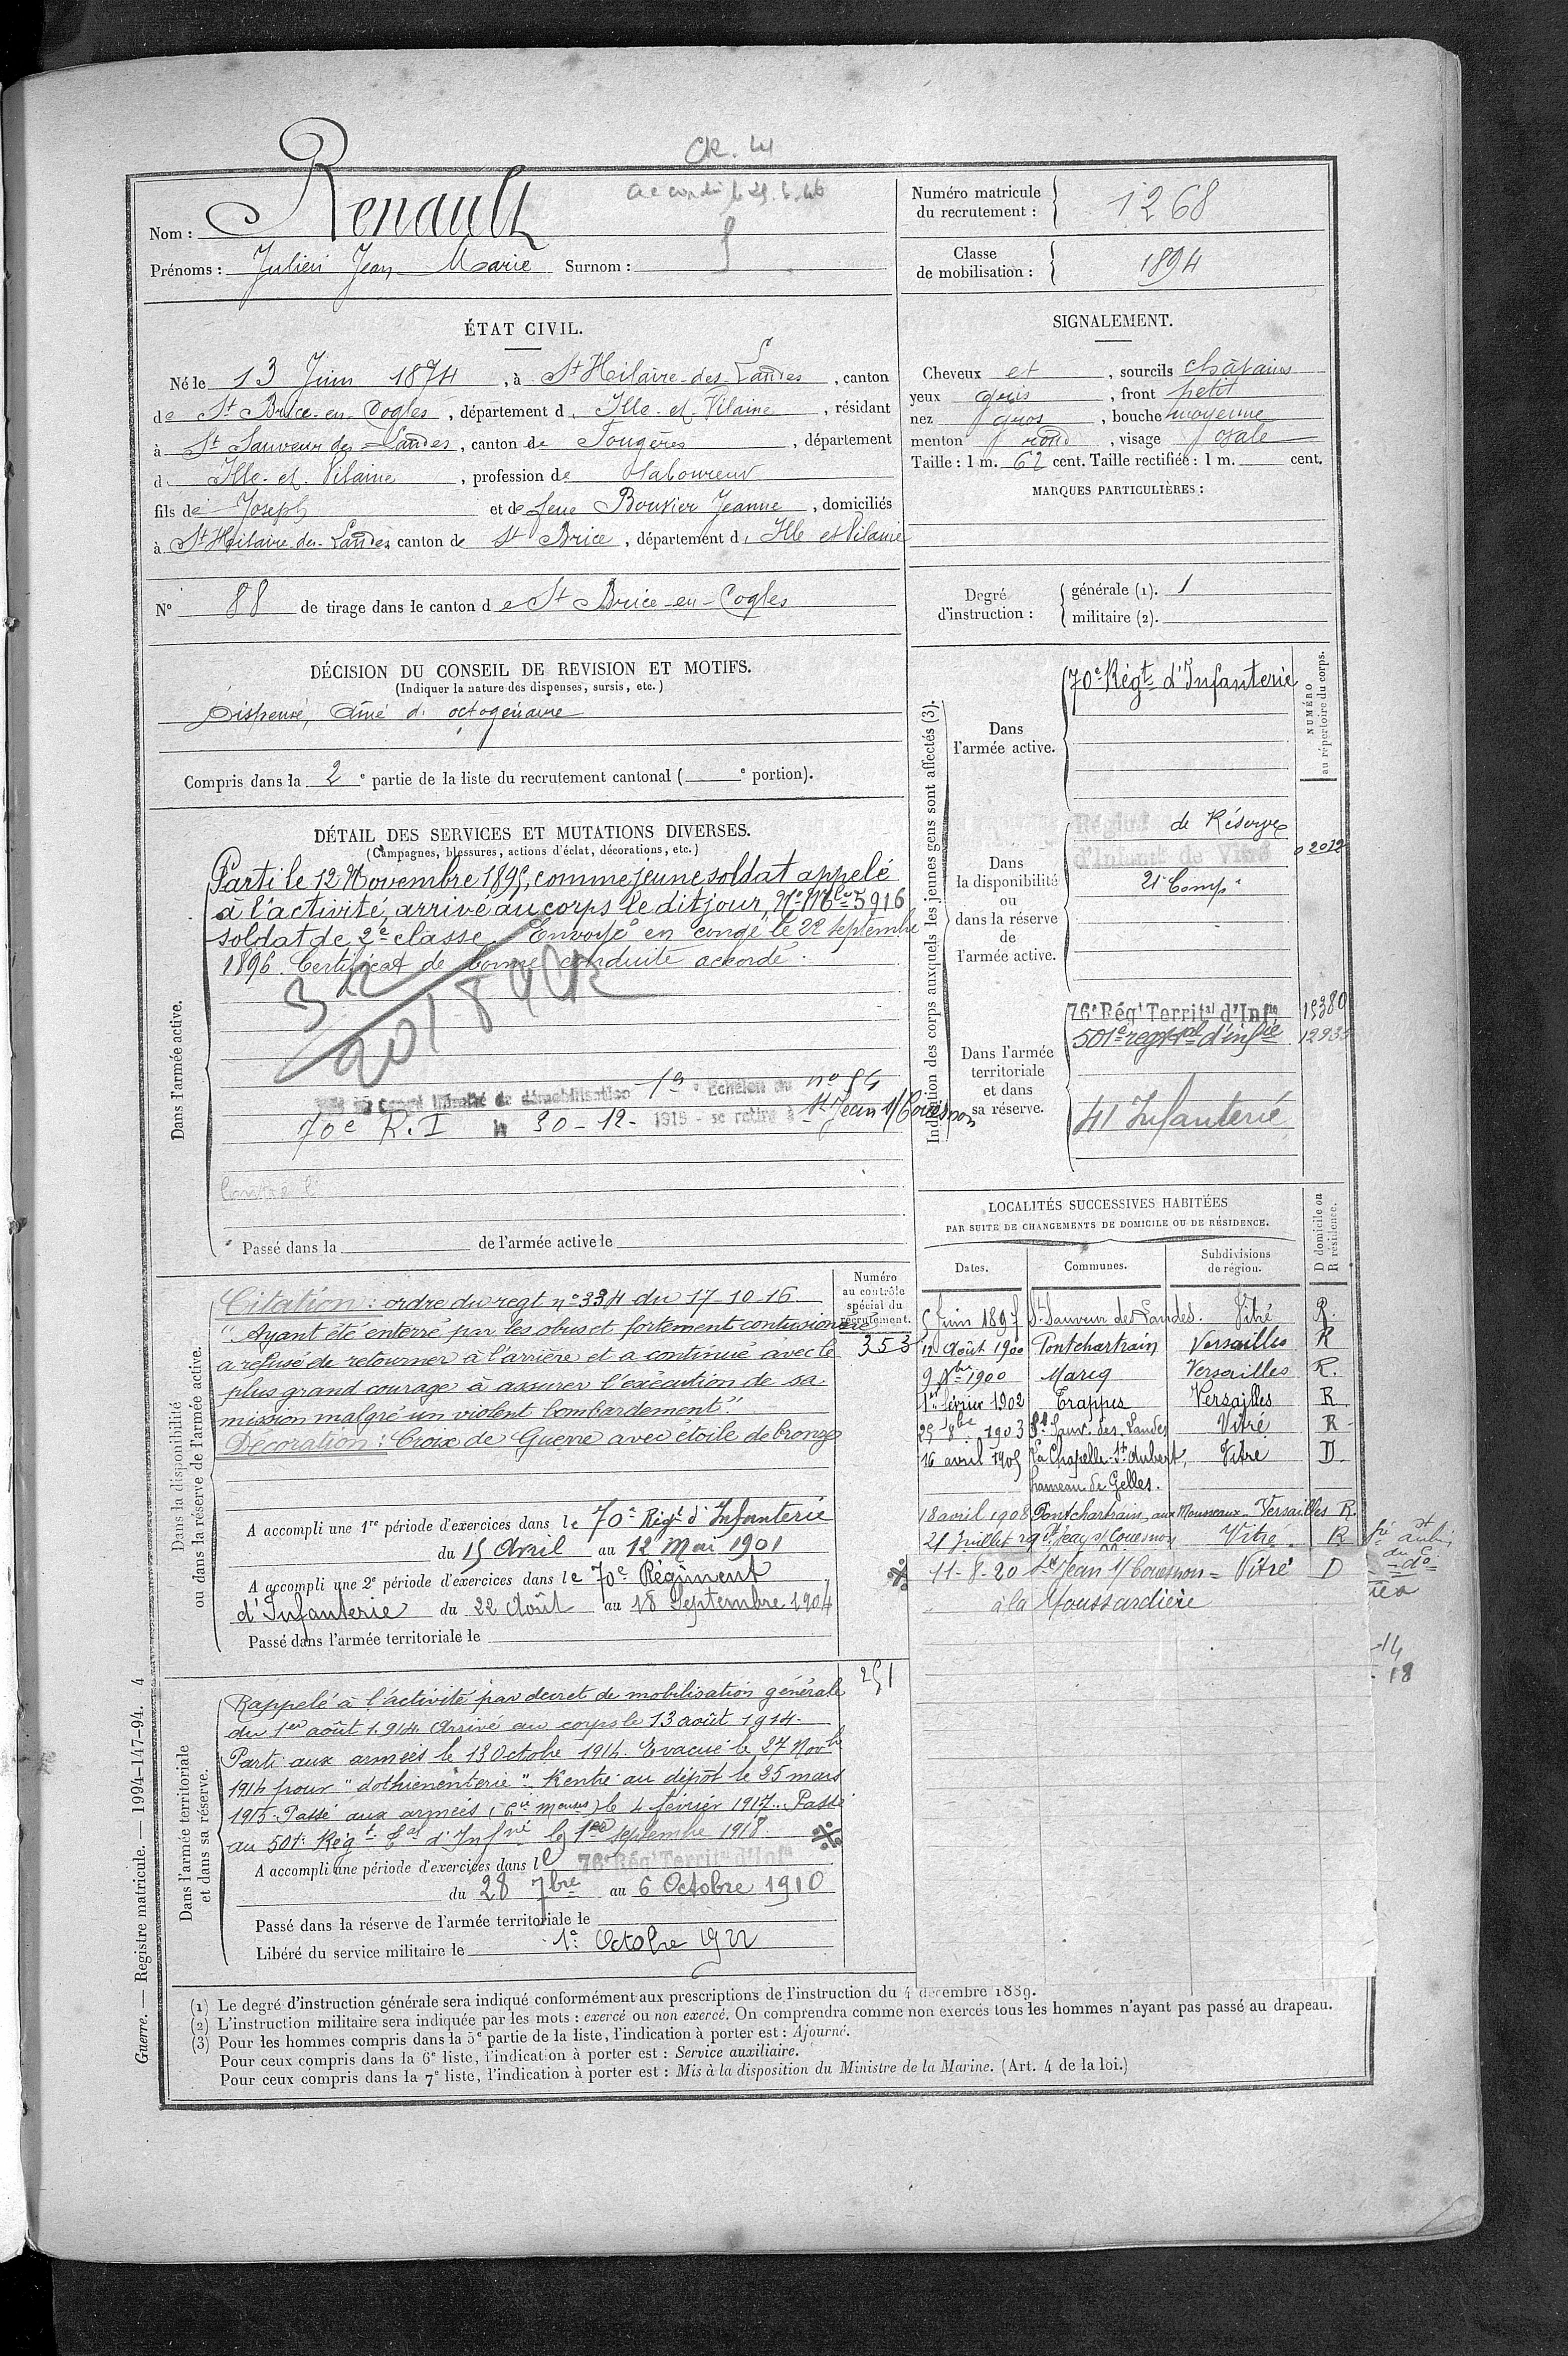 CR.
accordé le
Nom : Renault
Prénoms : Julien Jean Marie Surnom :
Numéro matricule du recrutement : 1268
Classe de mobilisation : 1894
ÉTAT CIVIL.
Né le 13 Juin 1874, à St Hilaire-des-Landes, canton
de St Brice-en-Cogles, département d' Ille-et-Vilaine, résidant
à St Sauveur des Landes, canton de Fougères, département
d' Ille-et-Vilaine, profession de laboureur
fils de Joseph et de feue Bouvier Jeanne, domiciliés
à St Hilaire des Landes canton de St Brice, département d' Ille et Vilaine
N° 88 de tirage dans le canton de St Brice-en-Cogles
SIGNALEMENT.
Cheveux et , sourcils châtains
yeux gris , front petit
nez gros , bouche moyenne
menton rond , visage ovale
Taille : 1 m. 62 cent. Taille rectifiée : 1 m. cent.
MARQUES PARTICULIÈRES :
Degré d'instruction : générale (1). 1
militaire (2).
DÉCISION DU CONSEIL DE REVISION ET MOTIFS.
(Indiquer la nature des dispenses, sursis, etc.)
Dispensé, aîné d' octogénaire
Compris dans la 2 e partie de la liste du recrutement cantonal ( e portion).
DÉTAIL DES SERVICES ET MUTATIONS DIVERSES.
(Campagnes, blessures, actions d'éclat, décorations, etc.)
Dans l'armée active.
Parti le 12 Novembre 1895, comme jeune soldat appelé
à l'activité, arrivé au corps le dit jour, N° Mle 5916
soldat de 2e classe. Envoyé en congé le 22 septembre
1896. Certificat de bonne conduite accordé.
Échelon du n° 54
70e R.I le 30-12-1919 - se retire à St Jean s/ Couesnon
Passé dans la de l'armée active le
Indication des corps auxquels les jeunes gens sont affectés (3).
NUMÉRO au répertoire du corps.
Dans l'armée active.
70e Régt d'Infanterie
Dans la disponibilité ou dans la réserve de l'armée active.
Régimt de Réserve
d'Infantie de Vitré 02012
21e Compie
Dans l'armée territoriale et dans sa réserve.
76e Régt Territal d'Infie 15380
501e regt tal d'infie
41 Infanterie
Dans la disponibilité ou dans la réserve de l'armée active.
Numéro au contrôle spécial du recrutement.
353
Citation : ordre du regt n° 334 du 17-10-16
"Ayant été enterré par les obus et fortement contusionné
a refusé de retourner à l'arrière et a continué avec le
plus grand courage à assurer l'exécution de sa
mission malgré un violent bombardement."
Décoration : Croix de Guerre avec étoile de bronze
A accompli une 1re période d'exercices dans le 70e Régt d'Infanterie
du 15 Avril au 12 Mai 1901
A accompli une 2e période d'exercices dans le 70e Régiment
d'Infanterie du 22 Août au 18 Septembre 1904
Passé dans l'armée territoriale le
LOCALITÉS SUCCESSIVES HABITÉES
PAR SUITE DE CHANGEMENTS DE DOMICILE OU DE RÉSIDENCE.
Dates. Communes. Subdivisions de région. D domicile ou R résidence.
Juin 1897 St Sauveur des Landes. Vitré R.
12 Août 1900 Pontchartrain Versailles R
9 Xbre 1900 Mareq Versailles R.
1er février 1902 Trappes Versailles R
25 8bre 1903 St Sauv. des Landes Vitré R
16 avril 1905 La Chapelle-St Aubert, Vitré D.
hameau de Gelles.
18 avril 1908 Pontchartrain, aux Mousseaux Versailles R.
21 Juillet St Jean s/ Couesnon Vitré. R
11-8-20 St Jean s/ Couesnon = Vitré D
à la Moussardière
Dans l'armée territoriale et dans sa réserve.
251
Rappelé à l'activité par decret de mobilisation générale
du 1er août 1914 Arrivé au corps le 13 août 1914.
Parti aux armées le 13 Octobre 1914. Evacué le 27 Novbre
1914 pour "dothiénenterie". Rentré au dépôt le 25 mars
1915. Passé aux armées le 4 février 1917. Passé
au 501e Régt tal d'Infie le 1er septembre 1918
A accompli une période d'exercices dans le 76e Régt Territal d'Infie
du 28 7bre au 6 Octobre 1910
Passé dans la réserve de l'armée territoriale le
Libéré du service militaire le 1er Octobre 1922
(1) Le degré d'instruction générale sera indiqué conformément aux prescriptions de l'instruction du 4 décembre 1889.
(2) L'instruction militaire sera indiquée par les mots : exercé ou non exercé. On comprendra comme non exercés tous les hommes n'ayant pas passé au drapeau.
(3) Pour les hommes compris dans la 5e partie de la liste, l'indication à porter est : Ajourné.
Pour ceux compris dans la 6e liste, l'indication à porter est : Service auxiliaire.
Pour ceux compris dans la 7e liste, l'indication à porter est : Mis à la disposition du Ministre de la Marine. (Art. 4 de la loi.)
Guerre. — Registre matricule. — 1994-147-94. 4